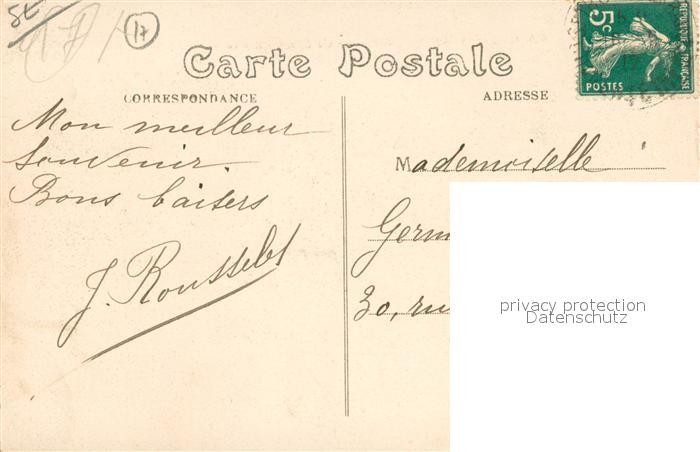 17
Carte Postale
CORRESPONDANCE
ADRESSE
5c
POSTES
REPUBLIQUE FRANÇAISE
Mon meilleur
souvenir
Bons baisers
J. Rousselet
Mademoiselle
Germ
30, ru
privacy protection
Datenschutz